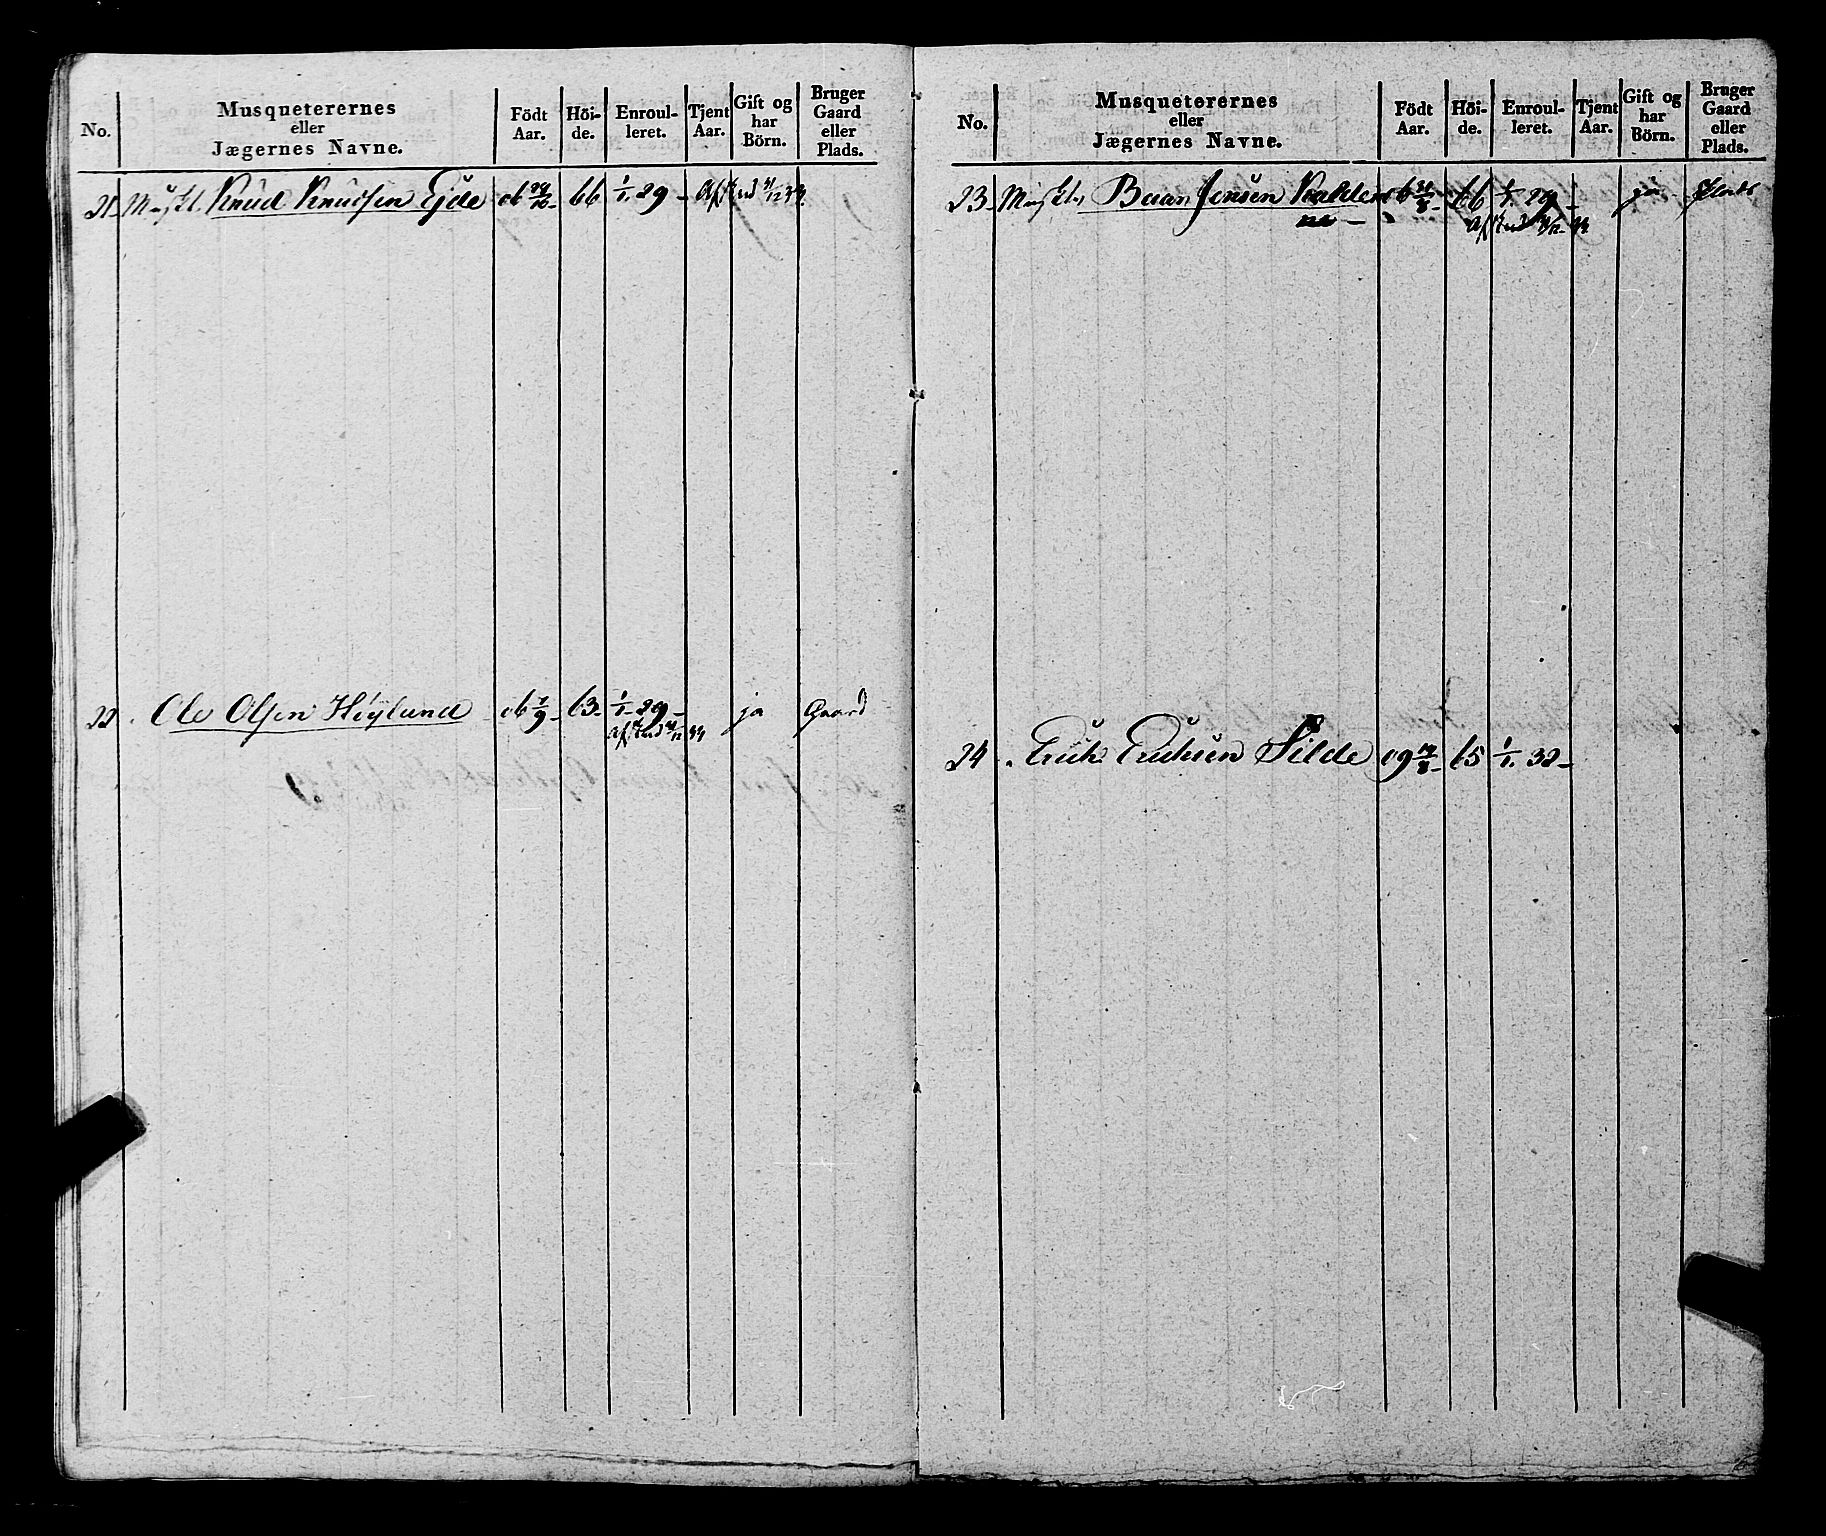 No.
Musqueterernes
eller
Jægernes Navne.
Födt
Aar.
Höi-
de.
Enroul-
leret.
Tjent
Aar.
Gift og
har
Börn.
Bruger
Gaard
eller
Plads.
21 Muskt. Knud Knudsen Ejde 06 66 1/1 29 - Afskd 31/12 33
22 Ole Olsen Höylund 06 7/9 63 1/1 29 - ja Gaard
Afskd 31/12 33
No.
Musqueterernes
eller
Jægernes Navne.
Födt
Aar.
Höi-
de.
Enroul-
leret.
Tjent
Aar.
Gift og
har
Börn.
Bruger
Gaard
eller
Plads.
23 Muskt. Jensen 66 1/1 29 - ja Plads
Afskd 31/12 33
24 Erick Ericksen Silde 09 65 1/1 32 -